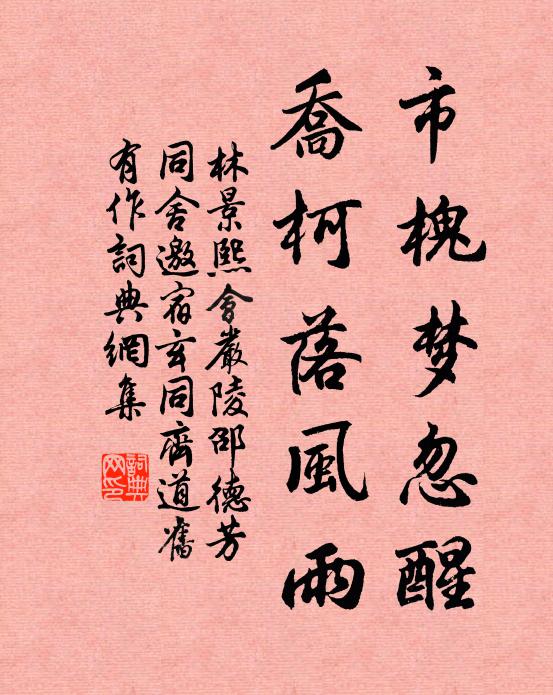 市槐梦忽醒
喬柯落風雨
林景熙會嚴陵邵德芳
同舍邀宿玄同齊道舊
有作詞典網集
詞典網印